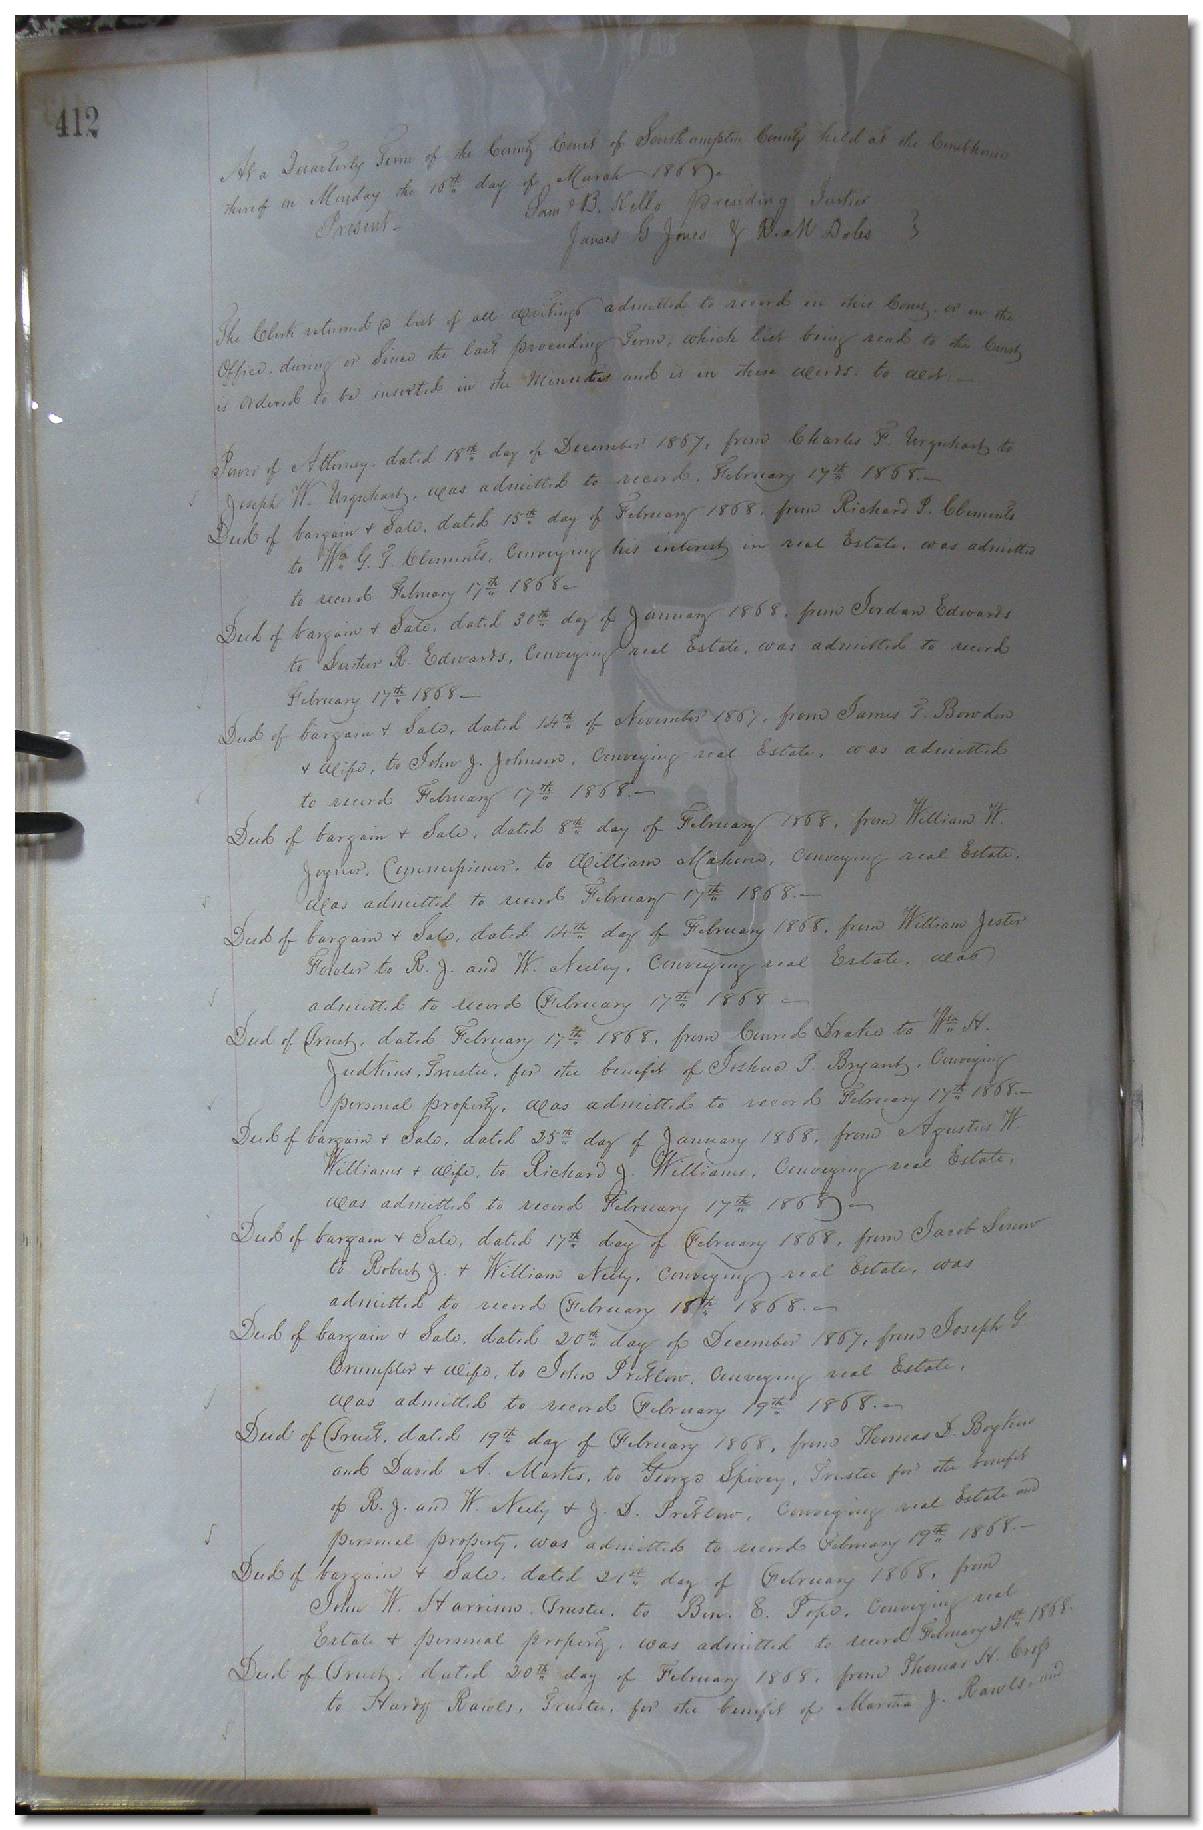 412
At a Quarterly Term of the County Court of Southampton County held at the Courthouse
thereof on Monday the 16th day of March 1868.
Saml B. Kello Presiding Justice
Present- James G Jones & }
The Clerk returned a list of all writings admitted to record in this Court, or in the
Office, during or since the last preceeding Term, which list being read to the Court
is ordered to be inserted in the Minutes and is in these words: to wit. —
Power of Attorney, dated 18th day of December 1867, from Charles F. Urquhart to
Joseph W. Urquhart, was admitted to record, February 17th 1868.—
Deed of bargain & Sale, dated 15th day of February 1868, from Richard P. Clements
to Wm G. T. Clements, Conveying his interest in real Estate, was admitted
to record February 17th 1868—
Deed of bargain & Sale, dated 30th day of January 1868, from Jordan Edwards
to R. Edwards, Conveying real Estate, was admitted to record
February 17th 1868—
Deed of bargain & Sale, dated 14th of November 1867, from James T. Bowden
& wife, to John J. Johnson, Conveying real Estate, was admitted
to record February 17th 1868.—
Deed of bargain & Sale, dated 8th day of February 1868, from William W.
Joyner, Commissioner, to William Mahone, Conveying real Estate,
was admitted to record February 17th 1868.—
Deed of bargain & Sale, dated 14th day of February 1868, from William Jester
Fowler to R. J. and W. Neeley, Conveying real Estate, was
admitted to record February 17th 1868 —
Deed of Trust, dated February 17th 1868, from Drake to Wm H.
Judkins, Trustee, for the benefit of Joshua P. Bryant, Conveying
personal property, was admitted to record February 17th 1868—
Deed of bargain & Sale, dated 25th day of January 1868, from Agustus W.
Williams & wife, to Richard J. Williams, Conveying real Estate,
was admitted to record February 17th 1868 —
Deed of bargain & Sale, dated 17th day of February 1868, from Jacob
to Robert J. & William Neely, Conveying real Estate, was
admitted to record February 18th 1868.—
Deed of bargain & Sale, dated 20th day of December 1867, from Joseph G
Crumpler & wife, to John Pretlow, Conveying real Estate,
was admitted to record February 19th 1868.—
Deed of Trust, dated 19th day of February 1868, from Thomas D. Boykin
and David A. to George Spivey, Trustee for the benefit
of R. J. and W. Neely & J. D. Pretlow, Conveying real Estate and
personal property, was admitted to record February 19th 1868.—
Deed of bargain & Sale, dated 21st day of February 1868, from
John W. Harrison, Trustee, to Ben. E. Pope, Conveying real
Estate & personal property, was admitted to record February 21st 1868.
Deed of Trust, dated 20th day of February 1868, from Thomas H. Cross
to Hardy Rawls, Trustee, for the benefit of Martha J. Rawls, and